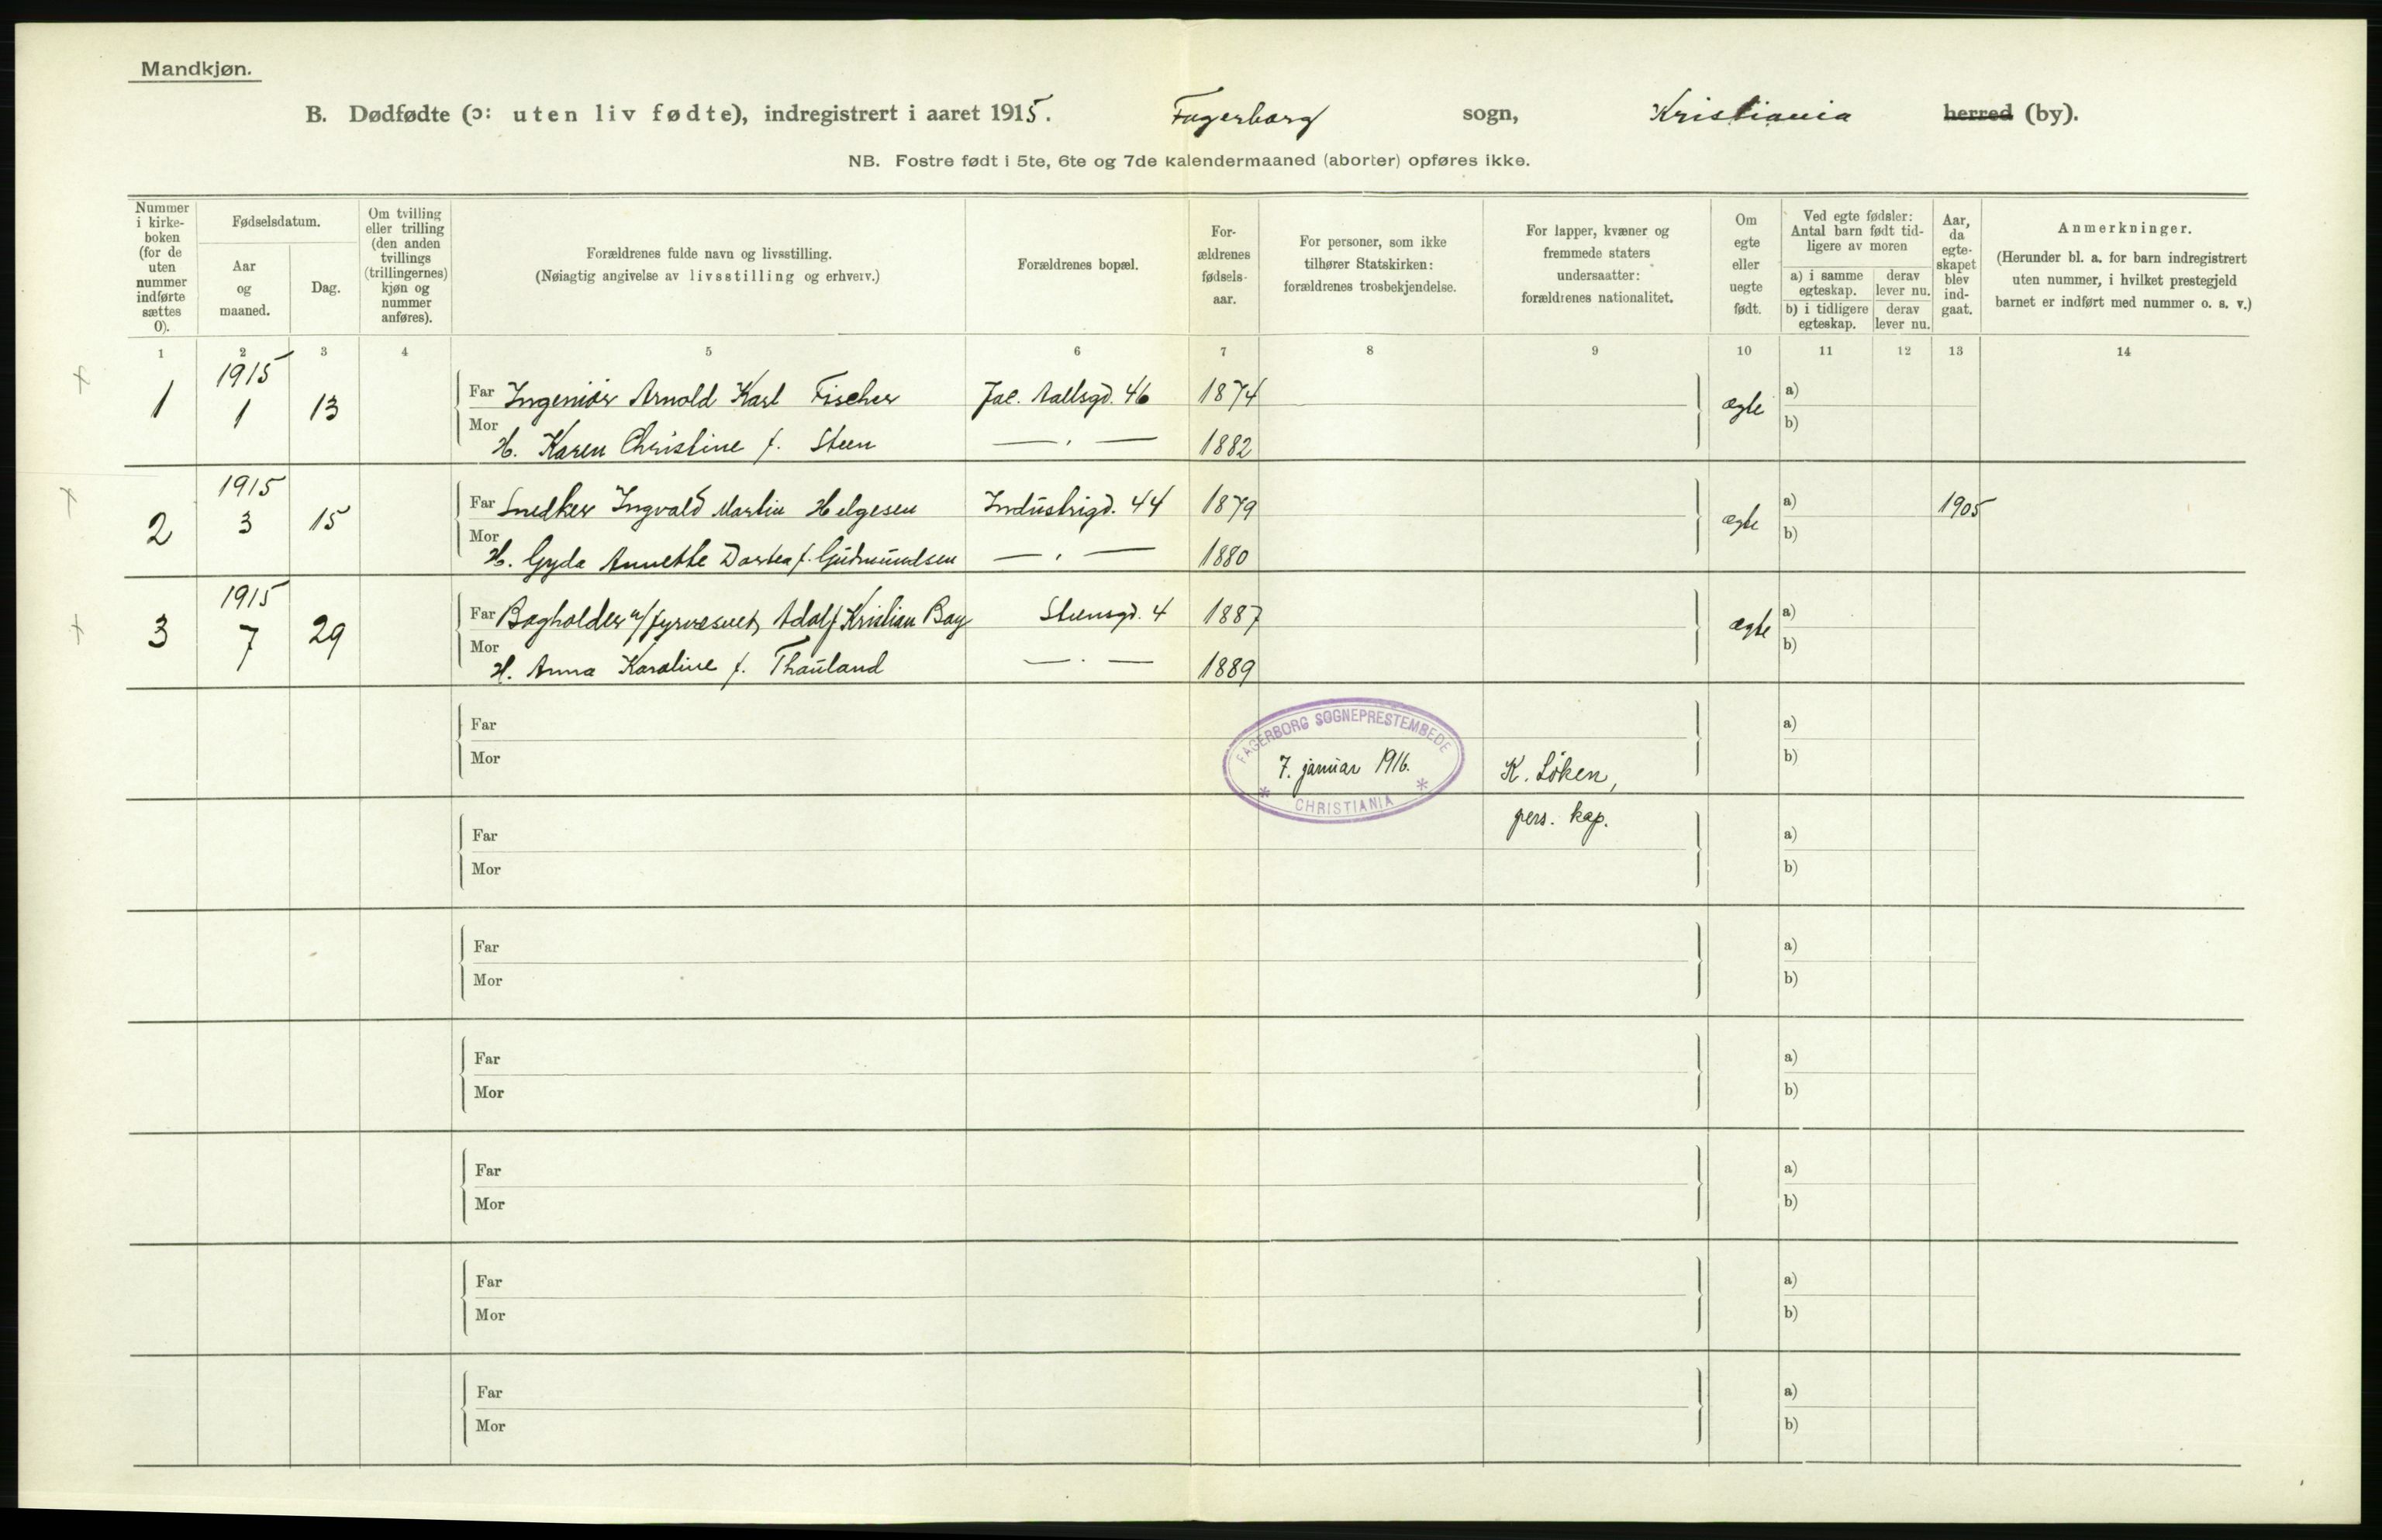 Mandkjøn.
B. Dødfødte (ɔ: uten liv fødte), indregistrert i aaret 1915. Fagerborg sogn, Kristiania herred (by).
NB. Fostre født i 5te, 6te og 7de kalendermaaned (aborter) opføres ikke.
Nummer i kirke-boken (for de uten nummer indførte sættes 0).
Fødselsdatum.
Aar og maaned.
Dag.
Om tvilling eller trilling (den anden tvillings (trillingernes) kjøn og nummer anføres).
Forældrenes fulde navn og livsstilling.
(Nøiagtig angivelse av livsstilling og erhverv.)
Forældrenes bopæl.
For-ældrenes fødsels-aar.
For personer, som ikke tilhører Statskirken: forældrenes trosbekjendelse.
For lapper, kvæner og fremmede staters undersaatter: forældrenes nationalitet.
Om egte eller uegte født.
Ved egte fødsler: Antal barn født tid-ligere av moren
a) i samme egteskap.
derav lever nu.
b) i tidligere egteskap.
derav lever nu.
Aar, da egte-skapet blev ind-gaat.
Anmerkninger.
(Herunder bl. a. for barn indregistrert uten nummer, i hvilket prestegjeld barnet er indført med nummer o. s. v.)
1 2 3 4 5 6 7 8 9 10 11 12 13 14
1 1915 1 13 Far Ingeniør Arnold Karl Fischer Jac. Aallsgd. 46 1874 ægte a)
Mor H. Karen Christine f. Steen — . — 1882 b)
2 1915 3 15 Far Snedker Ingvald Martin Helgesen Industrigd. 44 1879 ægte a) 1905
Mor H. Gyda Annette Dortea f. Gudmundsen — . — 1880 b)
3 1915 7 29 Far Bogholder v/fyrvæsnet, Adolf Kristian Bay Stensgd. 4 1887 ægte a)
Mor H. Anna Karoline f. Thauland — . — 1889 b)
Far a)
Mor b)
FAGERBORG SOGNEPRESTEMBEDE
7. januar 1916. K. Löken,
* CHRISTIANIA *
pers. kap.
Far a)
Mor b)
Far a)
Mor b)
Far a)
Mor b)
Far a)
Mor b)
Far a)
Mor b)
Far a)
Mor b)